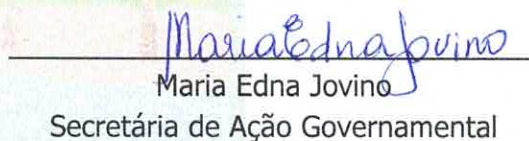 Maria Edna Jovino
Maria Edna Jovino
Secretária de Ação Governamental